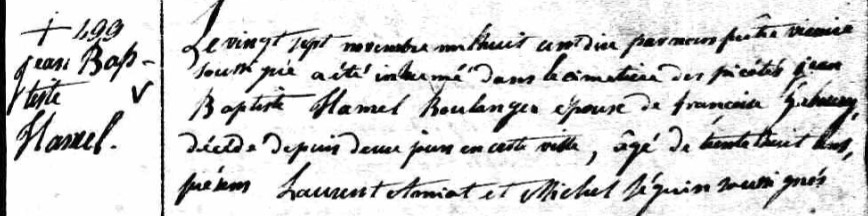 + 499
Jean Bap-
tiste V
Hamel.
Le vingt sept novembre mil huit cent dix par nous prêtre vicaire
soussigné a été inhumé dans le cimetière des picotés jean
Baptiste Hamel Boulanger epoux de francoise
décédé depuis deux jours en cette ville, âgé de trente huit ans,
présens Laurent Amiot et Michel Séguin soussignés